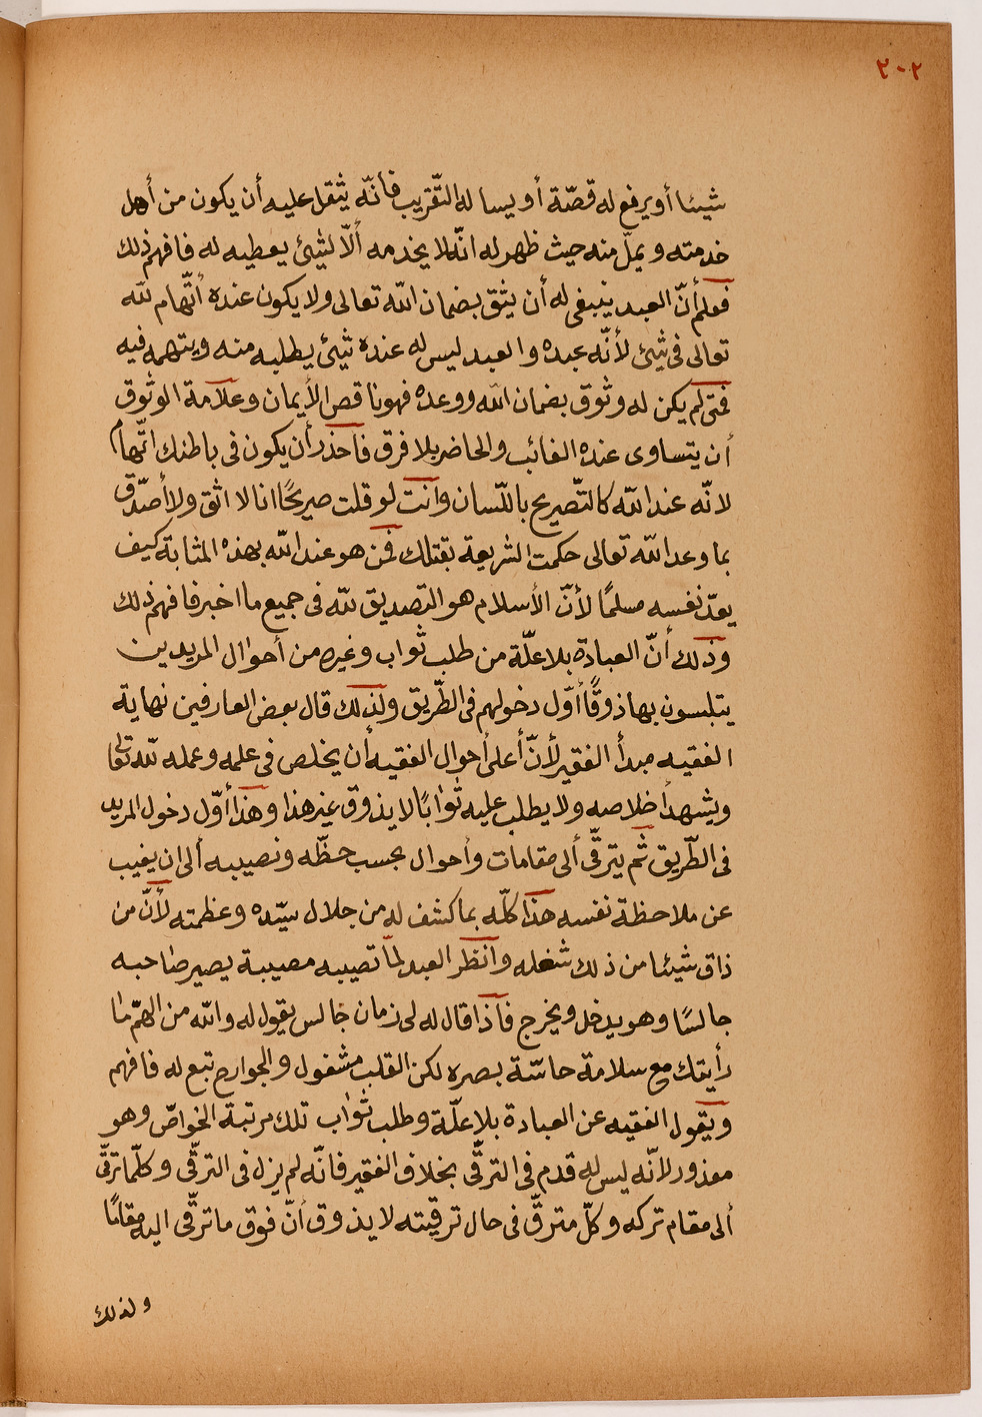 ٢٠٢
شيئا أو يرفع له قصّة أو يسا له التّقريب فانّه يثقل عليه أن يكون من أهل
خدمته ويملّ منه حيث ظهر له انّه لا يخدمه ألّا لشيئ يعطيه له فافهم ذلك
فعلم أنّ العبد ينبغى له أن يثق بضمان الله تعالى ولا يكون عنده أتّهام لله
تعالى فى شيئ لأنّه عبده والعبد ليس له عنده شيئ يطلبه منه ويتهمه فيه
فمتى لم يكن له وثوق بضمان الله ووعده فهو ناقص الأيمان وعلامة الوثوق
أن يتساوى عنده الغائب والحاضر بلا فرق فاحذر أن يكون فى باطنك اتّهام
لانّه عند الله كالتّصريح باللّسان وأنت لو قلت صريحًا انا لا اثق ولا أصدّق
بما وعد الله تعالى حكمت الشريعة بقتلك فمن هو عند الله بهذه المثابة كيف
يعدّ نفسه مسلمًا لأنّ الأسلام هو التصديق لله فى جميع ما اخبر فافهم ذلك
وذلك أنّ العبادة بلا علّة من طلب ثواب وغيره من أحوال المريدين
يتلبسون بها ذوقًا أوّل دخولهم فى الطّريق ولذلك قال بعض العارفين نهاية
الفقيه مبدأ الفقير لأنّ أعلى أحوال الفقيه أن يخلص فى علمه وعمله لله تعالى
ويشهد أخلاصه ولا يطلب عليه ثوابًا لا يذوق غير هذا وهذا أوّل دخول المريد
فى الطّريق ثم يترقّى ألى مقامات وأحوال بحسب حظّه ونصيبه ألى ان يغيب
عن ملاحظة نفسه هذا كلّه بما كشف له من جلال سيّده وعظمته لأنّ من
ذاق شيئا من ذلك شغله وانظر العبد لما تصيبه مصيبة يصير صاحبه
جالسًا وهو يدخل ويخرج فأذا قال له لى زمان جالس يقول له والله من الهمّ ما
رأيتك مع سلامة حاسّة بصره لكن القلب مشغول والجوارح تبع له فافهم
ويقول الفقيه عن العبادة بلا علّة وطلب ثواب تلك مرتبة الخواصّ وهو
معذور لأنّه ليس له قدم فى الترقّى بخلاف الفقير فانّه لم يزل فى الترقّى وكلّما ترقّى
ألى مقام تركه وكلّ مترقّ فى حال ترقيته لا يذوق أنّ فوق ما ترقّى اليه مقامًا
ولذلك